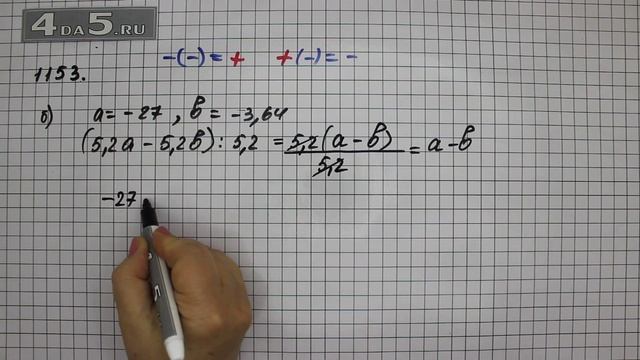 4DA5.RU
-(-) = + +(-) = -
1153.
б) a = -27, b = -3,64
(5,2a - 5,2b) : 5,2 = 5,2(a - b) / 5,2 = a - b
-27